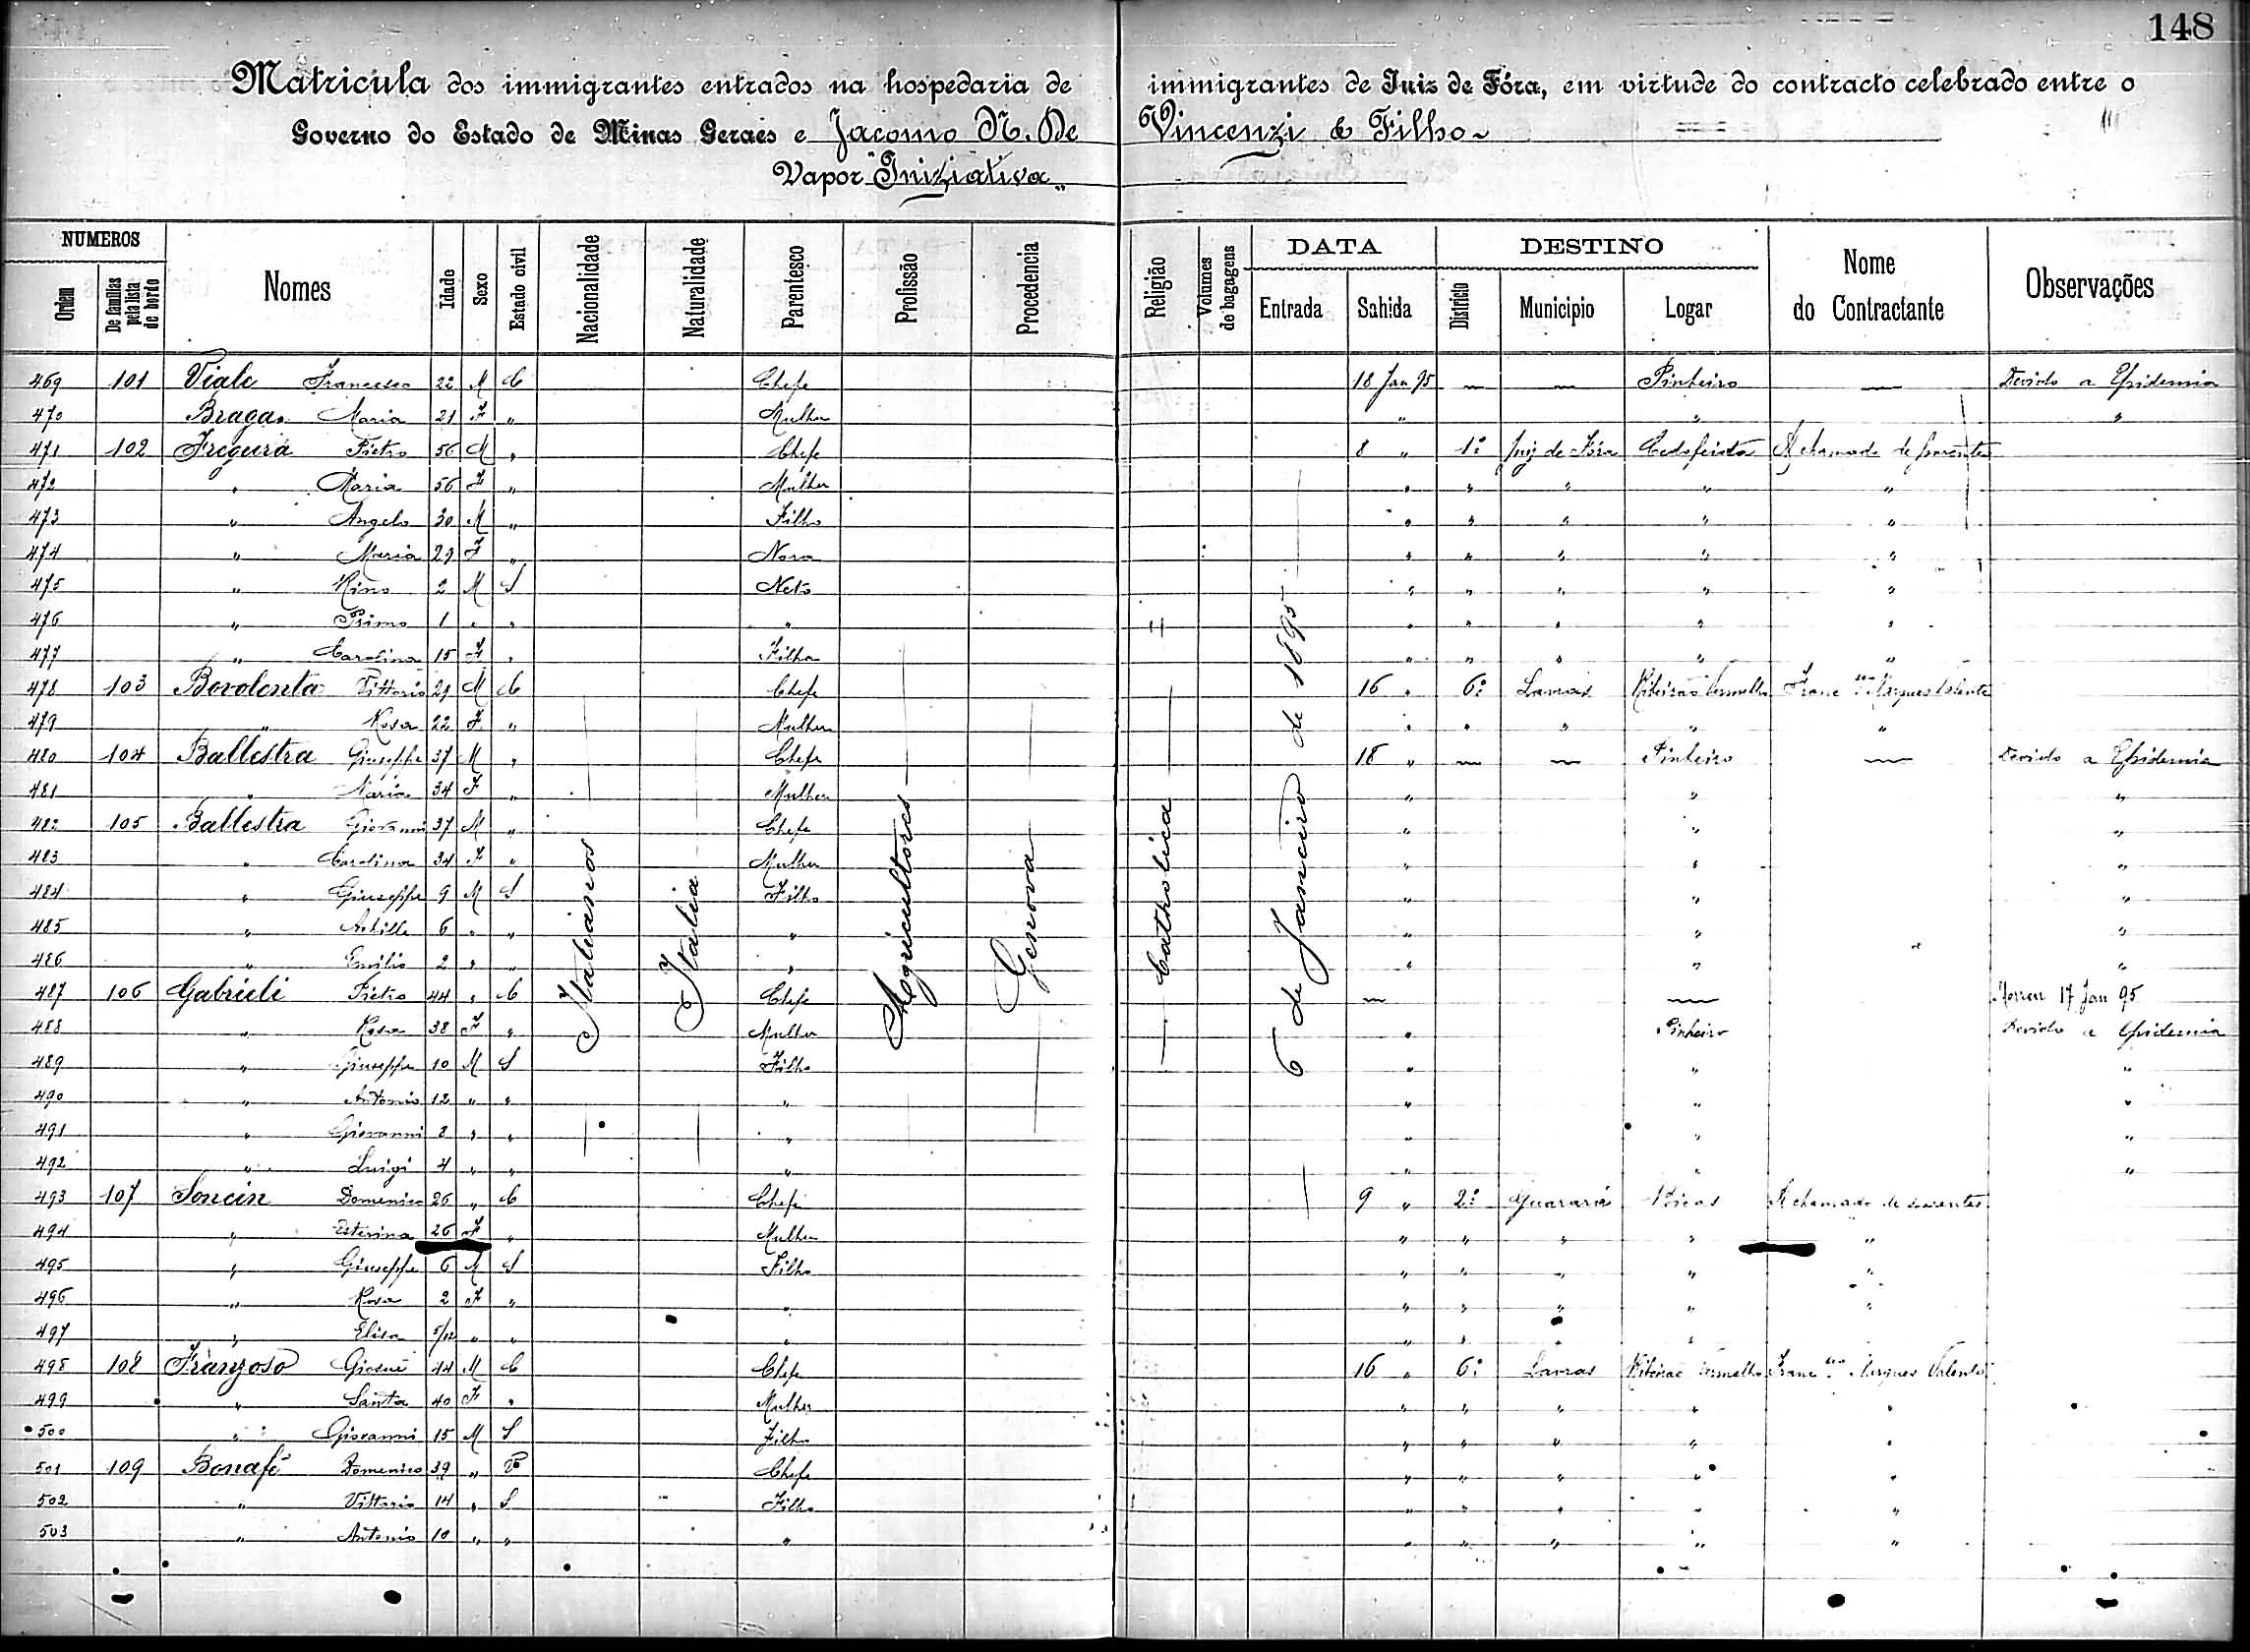 148
Matricula dos immigrantes entrados na hospedaria de immigrantes de Juiz de Fóra, em virtude do contracto celebrado entre o
Governo do Estado de Minas Geraes e Jacomo N. De Vincenzi & Filho
Vapor "Iniziativa"
NUMEROS DATA DESTINO
Ordem De familias pela lista de bordo Nomes Idade Sexo Estado civil Nacionalidade Naturalidade Parentesco Profissão Procedencia Religião Volumes de bagagens Entrada Sahida Districto Municipio Logar Nome do Contractante Observações
469 101 Viale Francesco 22 M C Chefe 18 Jan 95 — — Pinheiro — Devido a Epidemia
470 Braga Maria 21 F " Mulher " " "
471 102 Fregura Pietro 56 M " Chefe 8 " 1º Juiz de Fóra A chamado de parentes
472 " Maria 56 F " Mulher " " " " "
473 " Angelo 30 M " Filho " " " " "
474 " Maria 29 F " Nora " " " " "
475 " 2 M S Neto " " " " "
476 " Primo 1 " " " " " " " "
477 " Carolina 15 F " Filha " " " " "
478 103 Bovolenta Vittorio 29 M C Chefe 16 " 6º Lavras Ribeirão Vermelho Franc.co Marques Valente
479 " Rosa 22 F " Mulher " " " " "
480 104 Ballestra Giuseppe 37 M " Chefe 18 " — — Pinheiro — Devido a Epidemia
481 " Maria 34 F " Mulher " " "
482 105 Ballestra Giovanni 37 M " Chefe " " "
483 " Carolina 34 F " Mulher " " "
484 " Giuseppe 9 M S Filho " " "
485 " Achille 6 " " " " " "
486 " Emilio 2 " " " " " "
487 106 Gabrieli Pietro 44 " C Chefe — — Morreu 17 Jan 95
488 " Rosa 38 F " Mulher " Pinheiro Devido a Epidemia
489 " Giuseppe 10 M S Filho " " "
490 " Antonio 12 " " " " " "
491 " Giovanni 8 " " " " " "
492 " Luigi 4 " " " " " "
493 107 Soncin Domenico 26 " C Chefe 9 " 2º Guarará Bicas A chamado de parentes
494 " Esterina 26 F " Mulher " " " " "
495 " Giuseppe 6 M S Filho " " " " "
496 " Rosa 2 F " " " " " " "
497 " Elisa 5/12 " " " " " " "
498 108 Franzoso Giosuè 44 M C Chefe 16 " 6º Lavras Ribeirão Vermelho Franc.co Marques Valente
499 " Santa 40 F " Mulher " " " " "
500 " Giovanni 15 M S Filho " " " " "
501 109 Bonafè Domenico 39 " V Chefe " " " " "
502 " Vittorio 14 " S Filho " " " " "
503 " Antonio 10 " " " " " " " "
Italianos
Italia
Agricultores
Genova
Catholica
6 de Janeiro de 1895